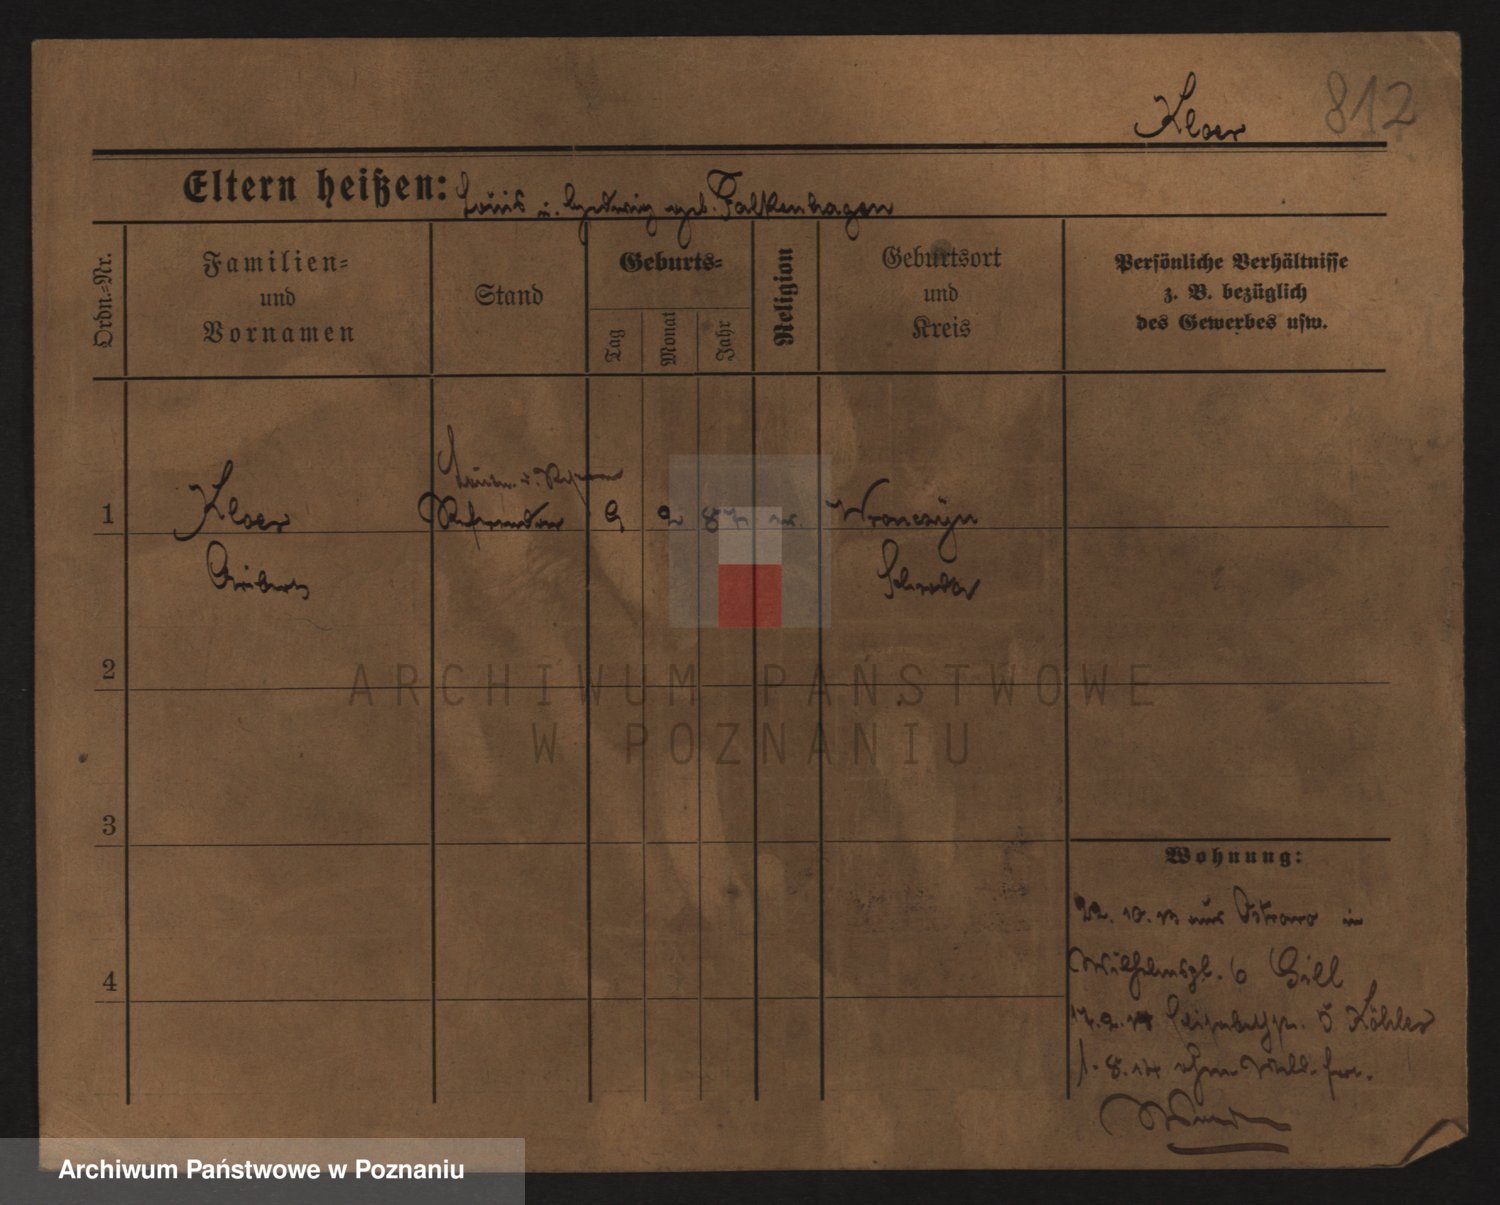 Kloer 812
Eltern heißen: Louis u. Hedwig geb. Falkenhagen
Ordn.-Nr.
Familien-
und
Vornamen
Stand
Geburts-
Tag
Monat
Jahr
Religion
Geburtsort
und
Kreis
Persönliche Verhältnisse
z. B. bezüglich
des Gewerbes usw.
1 Kloer Referendar 9 2 87 ev. Wronczyn
Schroda
2
3
4
Wohnung:
22. 10. 13 aus Ostrowo in
Wilhelmspl. 6 Gill
17. 2. 14 5 Köhler
1. 8. 14
ARCHIWUM PAŃSTWOWE
W POZNANIU
Archiwum Państwowe w Poznaniu